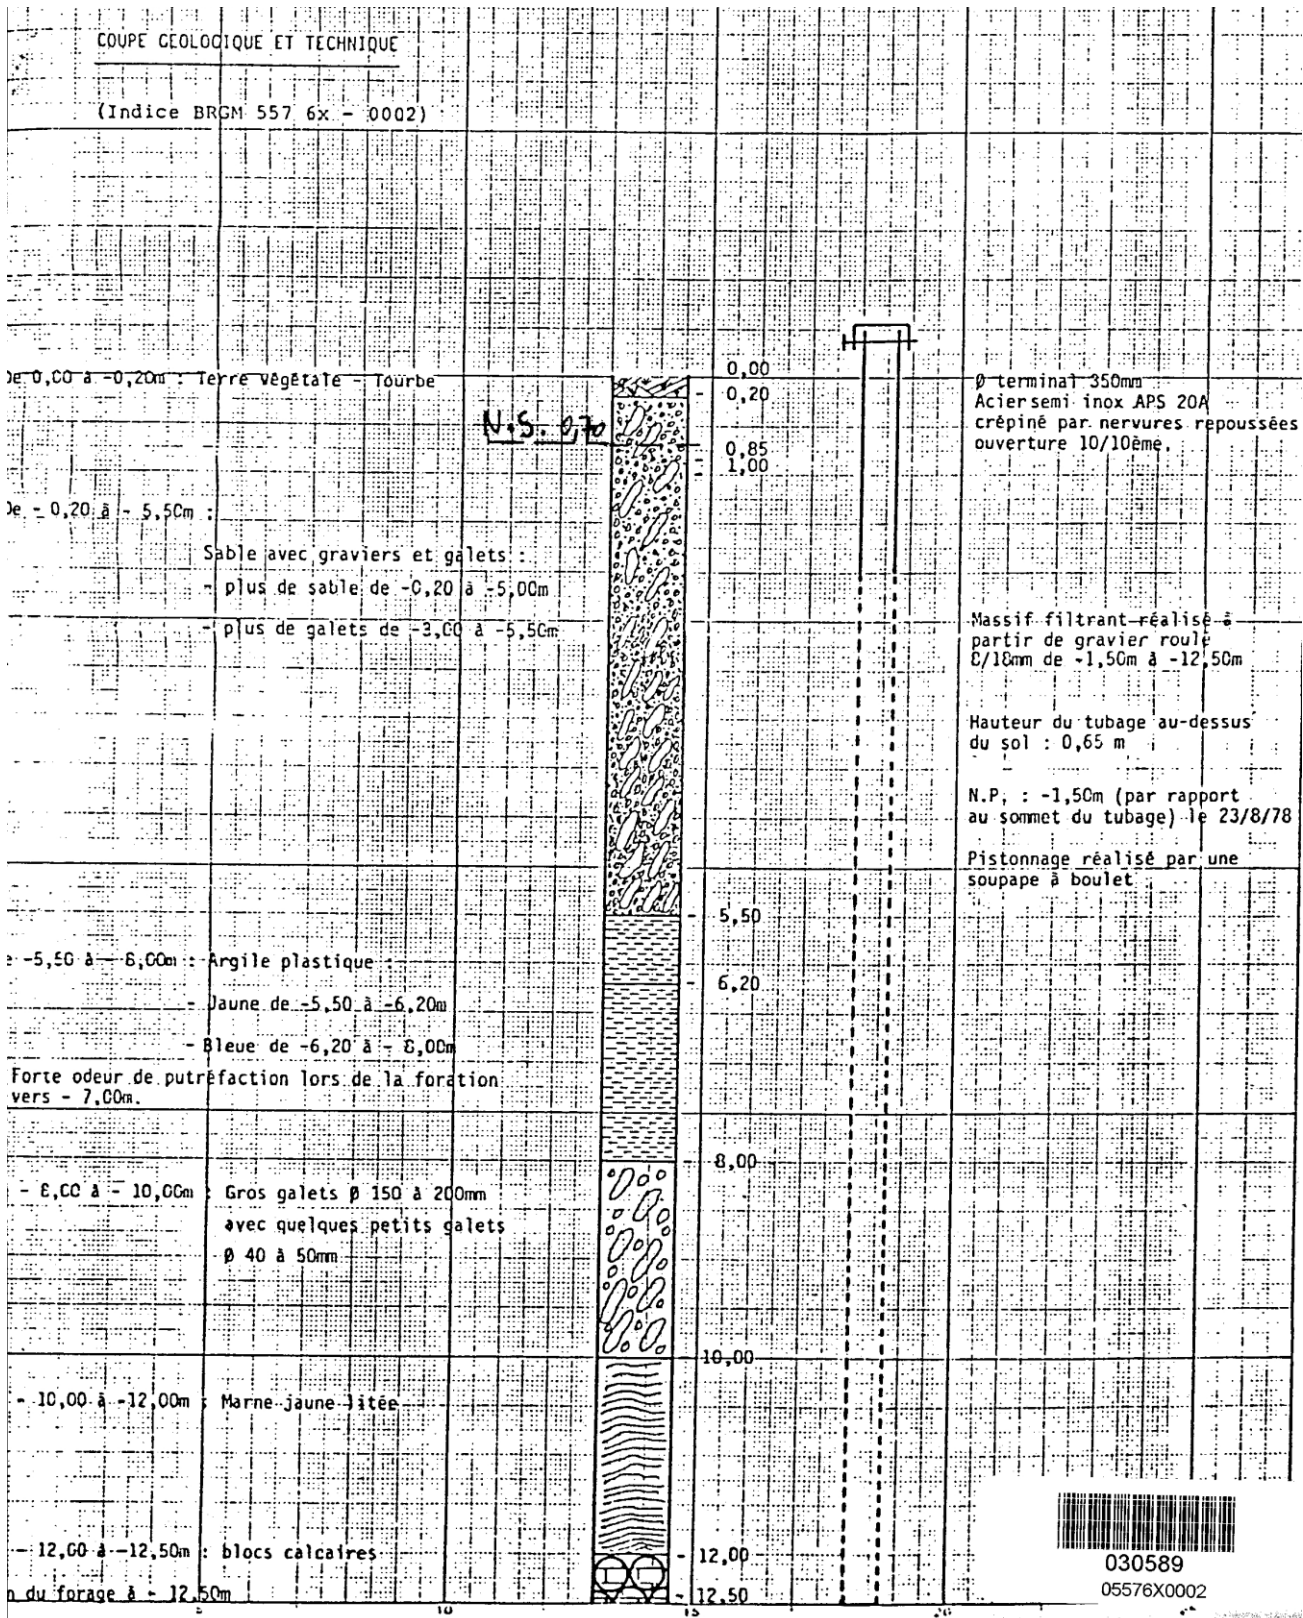 COUPE GEOLOGIQUE ET TECHNIQUE
(Indice BRGM 557 6x - 0002)
De 0,00 à -0,20m : Terre végétale - Tourbe
N.S. 0,70
De - 0,20 à - 5,50m :
Sable avec graviers et galets :
- plus de sable de -0,20 à -5,00m
- plus de galets de -3,00 à -5,50m
e -5,50 à - 8,00m : Argile plastique :
- Jaune de -5,50 à -6,20m
- Bleue de -6,20 à - 8,00m
Forte odeur de putréfaction lors de la foration
vers - 7,00m.
- 8,00 à - 10,00m : Gros galets Ø 150 à 200mm
avec quelques petits galets
Ø 40 à 50mm
- 10,00 à -12,00m : Marne jaune litée
- 12,00 à -12,50m : blocs calcaires
n du forage à - 12,50m
0,00
0,20
0,85
1,00
5,50
6,20
8,00
10,00
12,00
12,50
Ø terminal 350mm
Acier semi inox APS 20A
crépiné par nervures repoussées
ouverture 10/10ème.
Massif filtrant réalisé à
partir de gravier roulé
8/18mm de -1,50m à -12,50m
Hauteur du tubage au-dessus
du sol : 0,65 m
N.P. : -1,50m (par rapport
au sommet du tubage) le 23/8/78
Pistonnage réalisé par une
soupape à boulet
030589
05576X0002
5
10
15
20